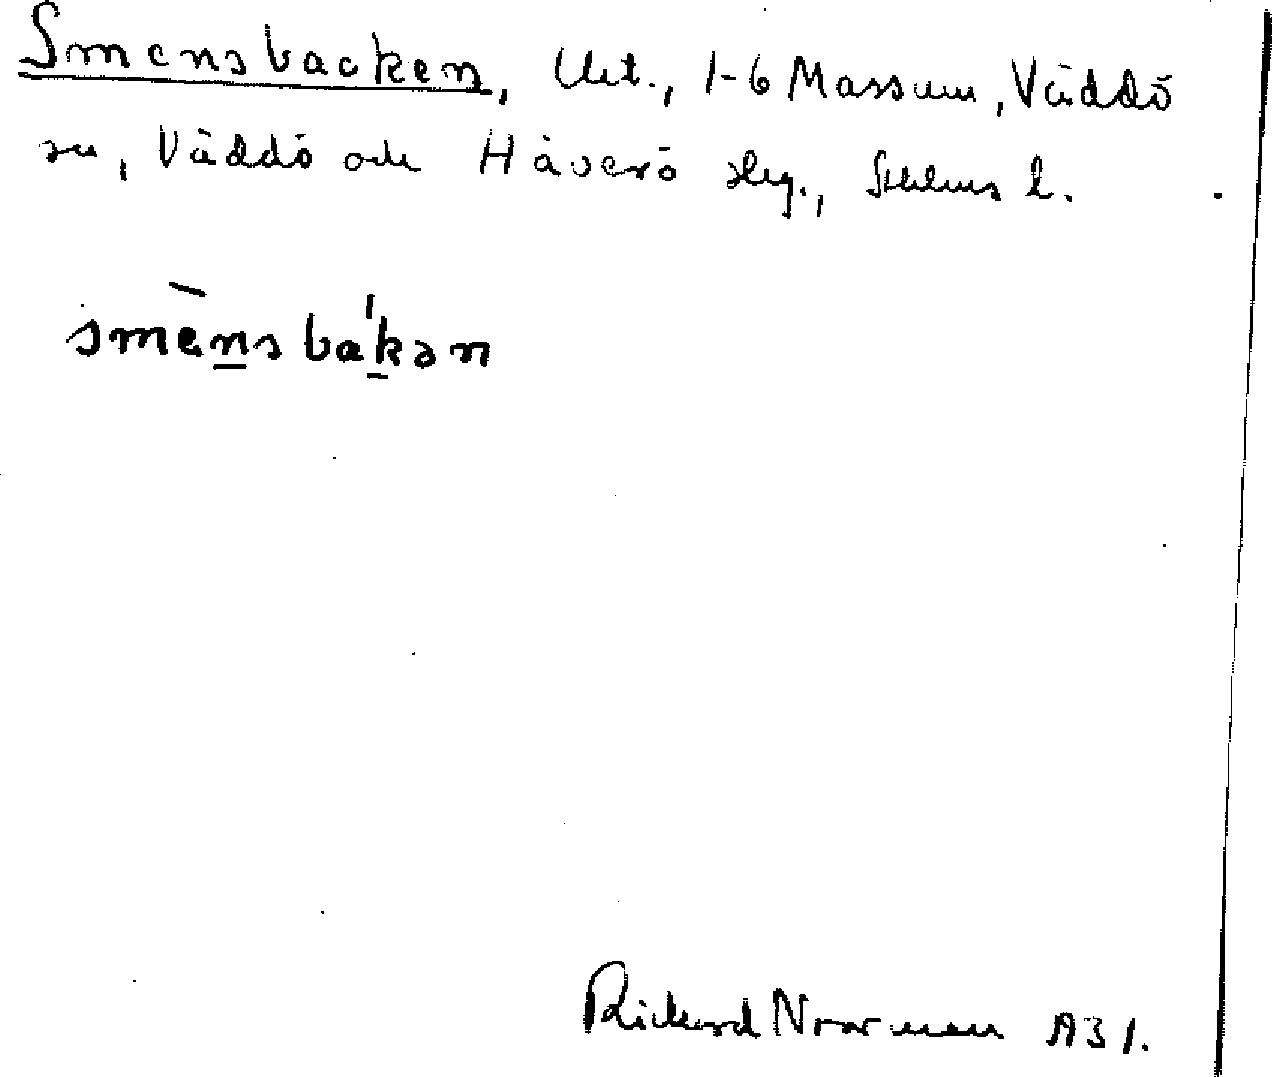 Smensbacken, Urt., 1-6 Massum, Väddö
sn, Väddö och Häverö skg., Sthlms l.
smènsbákən
Rickard Norrman A31.